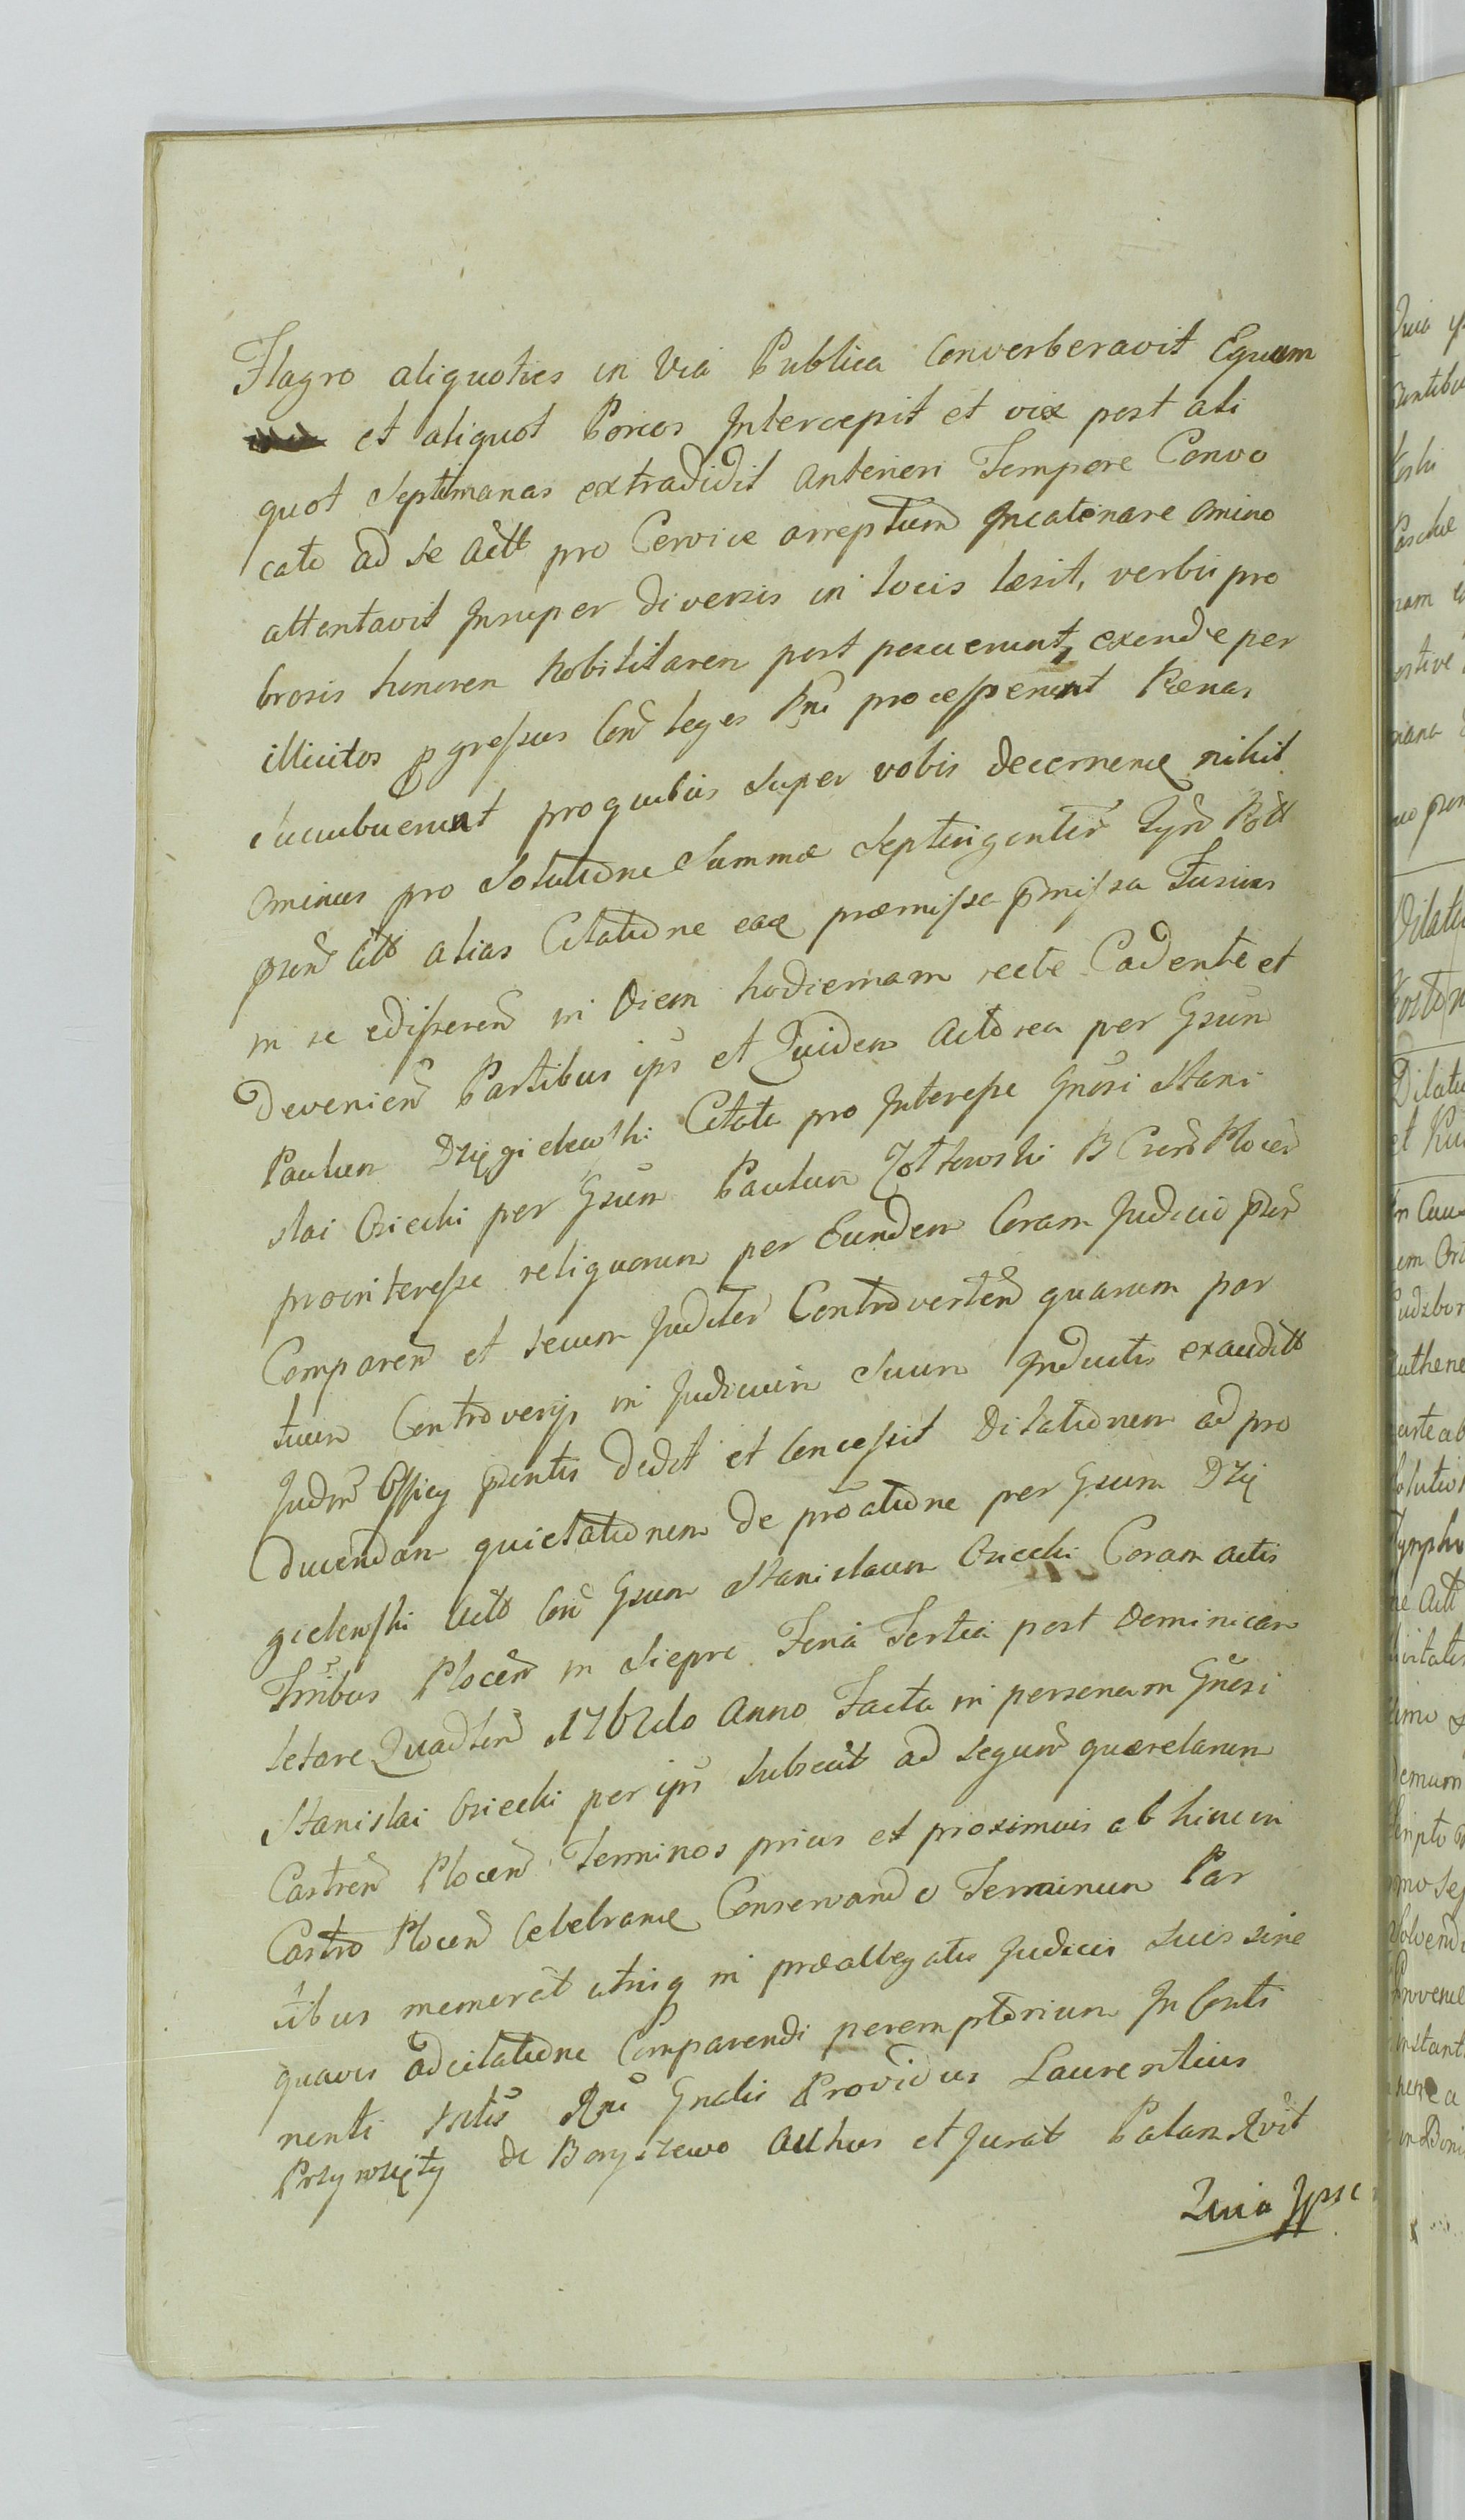 Flagro aliquoties in Via Publica Converberavit Equum
et aliquot Porcos Intercepit et vix post ali
quot Septimanas extradidit anteriori Tempore Convo
cato ad se Actt pro Cervice arreptum Incatenare omino
attentavit Insuper diversis in locis læsit, verbis pro
brosis honorem Nobilitarem post posuerunt, exinde per
illicitos pgressus Con leges Rni processerunt Pœnas
succubuerunt pro quibus super vobis decernen nihil
ominus pro Solutione Summæ Septingentor Tynf Pott
psen Actt alias Citatione eaq præmissa pmissa Fusius
in se edisseren in Diem hodiernam recte Cadente et
Devenien Partibus ips et Quidem Actorea per Gsum
Paulum Dzięgielewski Citata pro Interesse Gnosi Stani
slai Osiecki per Gsum Paulum Zołtowski B Csen Plocen
pro interesse reliquorum per Eundem Coram Judicio pter
Comparen et secum Juditer Controverten quarum par
tium Controversys in Judicium Suum Inductis exauditt
Judm Officy psentis dedit et Concessit Dilationem ad pro
ducendam quietationem de proatione per Gsum Dzię
gielewski Actt Con Gsum Stanislaum Osiecki Coram actis
Trribus Plocen in Siepre Feria Tertia post Dominicam
Letare Quadlem 1762do Anno Facta in personam Gnosi
Stanislai Osiecki per ips Subseit ad sequen quærelarum
Castren Plocen Terminos prius et proximius ab hinc in
Castro Plocen Celebran Conservando Terminum Par
tibus memorat utrisq in præallegatis Judiciis suis sine
quavis adcitatione Comparendi peremptorium In Conti
nenti Mtis Rni Gnalis Providus Laurentius
Przywsięty de Boryszewo Authus et Jurat Palam Rvit
Quia Ipse